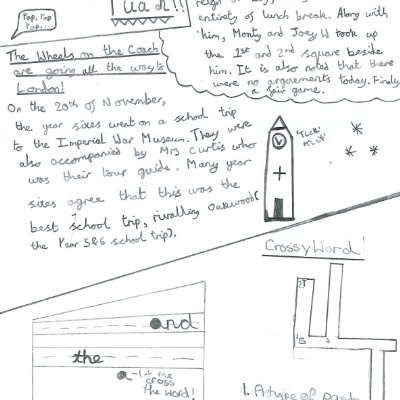 Pap, Pap
Pap...
entirety of lunch break. Along with
him, Monty and Joey W took up
the 1st and 2nd square beside
him. It is also noted that there
were no arguements today. Finally
a fair game.
The Wheels on the Coach
are going all the way to
London!
On the 20th of November,
the year sixes went on a school trip
to the Imperial War Museum. They were
also accompanied by Mrs Curtis who
was their tour guide. Many year
sixes agree that this was the
best school trip, rivalling Oakwood(
the Year 5&6 school trip).
and
the
a - let me
cross
the word!
Crossy Word!
1. A type of